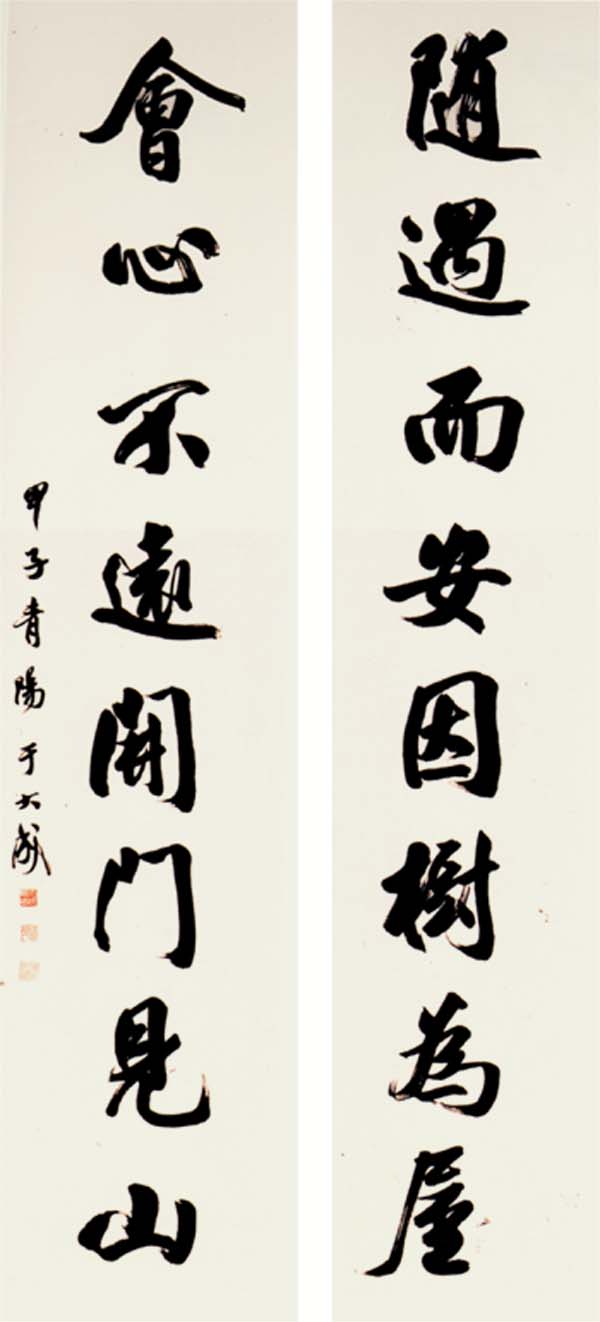 随遇而安因樹為屋
會心不遠開門見山
甲子青陽于大成